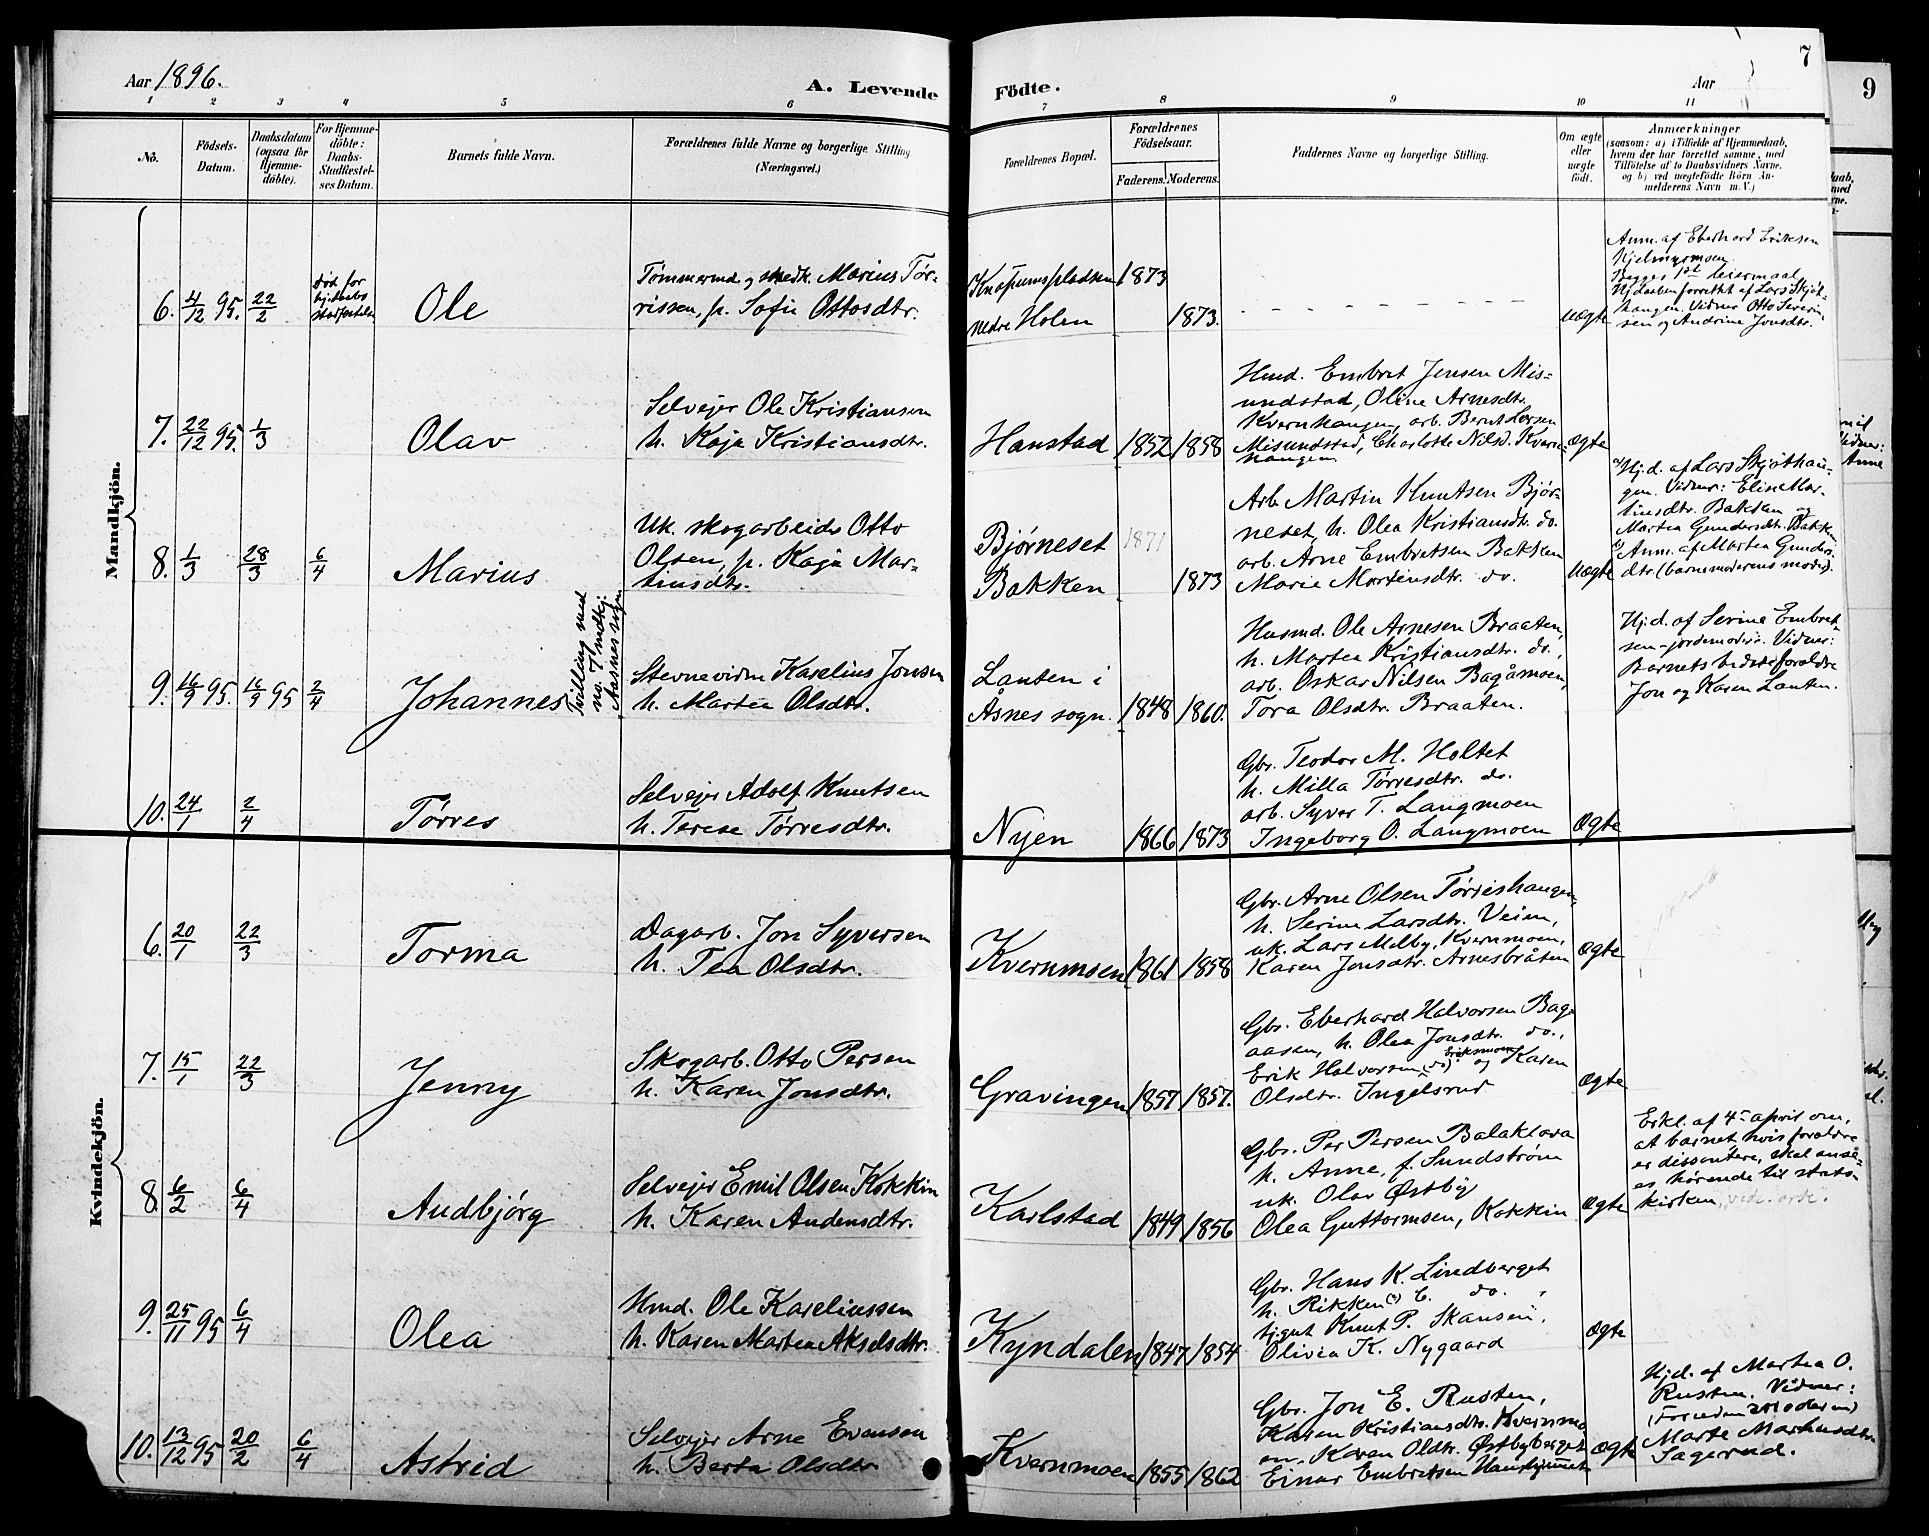 Aar 1896.
A. Levende
Födte.
Aar
7
9
1 2 3 4 5 6 7 8 9 10 11
No.
Födsels-
Datum.
Daabsdatum
(ogsaa for
Hjemme-
döbte).
For Hjemme-
döbte:
Daabs-
Stadfæstel-
ses Datum.
Barnets fulde Navn.
Forældrenes fulde Navne og borgerlige Stilling
(Næringsvei.)
Forældrenes Bopæl.
Forældrenes
Födselsaar.
Faderens.
Moderens.
Faddernes Navne og borgerlige Stilling.
Om ægte
eller
uægte
født.
Anmærkninger
(saasom: a) i Tilfælde af Hjemmedaab,
hvem der har forrettet samme, med
Tilföielse af to Daabsvidners Navne.
og b) ved uægtefödte Börn An-
melderens Navn m. V.)
Mandkjön.
6. 4/12 95. 22/2
død før
Ole
Tømmermd og snedk. Marius Tør-
rissen, p. Sofie Ottosdtr.
Knapumspladsen
nedre Holen
1873
1873.
Uægte
Anm. af Eberhard Eriksen
Kjelmyrmoen
Begges 1ste leiermaal
Hj.daaben forrettet af Lars Skjøt-
haugen. Vidner Otto Severin-
sen og Andrine Jonsdtr.
7. 22/12 95. 1/3
Olav
Selvejer Ole Kristiansen
h. Kaja Kristiansdtr.
Hanstad
1852 1858
Hmd. Embret Jensen Mis-
undstad, Oline Arnesdtr.
Kvernhaugen, arb. Bernt Larsen
Misundstad, Charlotte Nilsd. Kvern-
haugen
Ægte
8. 1/3 28/3 6/4
Marius
Uk. skogarbeider Otto
Olsen, p. Kaja Mar-
tinsdtr.
Bjørneset
Bakken
1871
1873
Arb. Martin Knutsen Bjør-
neset, h. Olea Kristiansdtr. do.
arb. Arne Embretsen Bakken
Marie Martinsdtr. do.
Uægte
a) Hj.d. af Lars Skjøthau-
gen. Vidner: Eline Mar-
tinsdtr. Bakken og
Martea Gundersdtr. Bakken
b) Anm. af Martea Gunders-
dtr. (barnemoderens moder).
9. 16/9 95. 16/9 95 2/4
Johannes
Tvilling med
no. 7 mdkj.
Aasnes sogn
Stevnevidne Karelius Jonsen
h. Martea Olsdtr.
Lauten i
Åsnes sogn.
1848 1860.
Husmd. Ole Arnesen Braaten,
h. Martea Kristiansdtr. do.,
arb. Oskar Nilsen Bagåmoen,
Tora Olsdtr. Braaten.
Hj.d. af Serine Embret-
sen - jordmoder. Vidner:
Barnets bedsteforældre
Jon og Karen Lauten.
10. 24/1 2/4
Tørres
Selvejer Adolf Knutsen
h. Terese Tørresdtr.
Nyen
1866 1873
Gbr. Teodor M. Holtet
h. Milla Tørresdtr. do.
arb. Syver T. Langmoen
Ingeborg O. Langmoen
Ægte
Kvindekjön.
6. 20/1 22/3
Torma
Dagarb. Jon Syversen
h. Tea Olsdtr.
Kvernmoen
1861 1858
Gbr. Arne Olsen Tørrishaugen,
h. Serine Larsdtr. Veien,
uk. Lars Melby, Kvernmoen,
Karen Jonsdtr. Arnesbråten
Ægte
7. 15/1 22/3
Jenny
Skogarb. Otto Persen
h. Karen Jonsdtr.
Gravingen
1857 1857.
Gbr. Eberhard Halvorsen Bag-
aasen, h. Olea Jonsdtr. do.,
Erik Halvorsen Eriksmoen og Karen
Olsdtr. Ingelsrud
Ægte
8. 6/2 6/4
Audbjörg
Selvejer Emil Olsen Kokkin
h. Karen Andersdtr.
Karlstad
1849 1856
Gbr. Per Persen Balaklava
h. Anne, f. Sundstrøm
uk. Olav Østby
Olea Guttormsen, Kokkin
Ægte
Erkl. af 4de april om,
at barnet, hvis forældre
er dissentere, skal anse-
es hørende til stats-
kirken, vide. ark.
9. 25/11 95 6/4
Olea
Hmd. Ole Kareliussen
h. Karen Martea Akselsdtr.
Kyndalen
1847 1854
Gbr. Hans K. Lindberget
h. Rikken (?) E. do.,
tjgut Knut P. Skansen,
Olivia K. Nygaard
Ægte
10. 13/12 95 20/2 6/4
Astrid
Selvejer Arne Evensen
h. Berta Olsdtr.
Kvernmoen
1855 1862
Gbr. Jon E. Rusten,
Karen Kristiansdtr. Kvernmo-
en, Karen Oldtr. Østbyberget
Einar Embretsen
Ægte
Hj.d. af Martea O.
Rusten. Vidner:
Marte Markusdtr.
Sagerud.